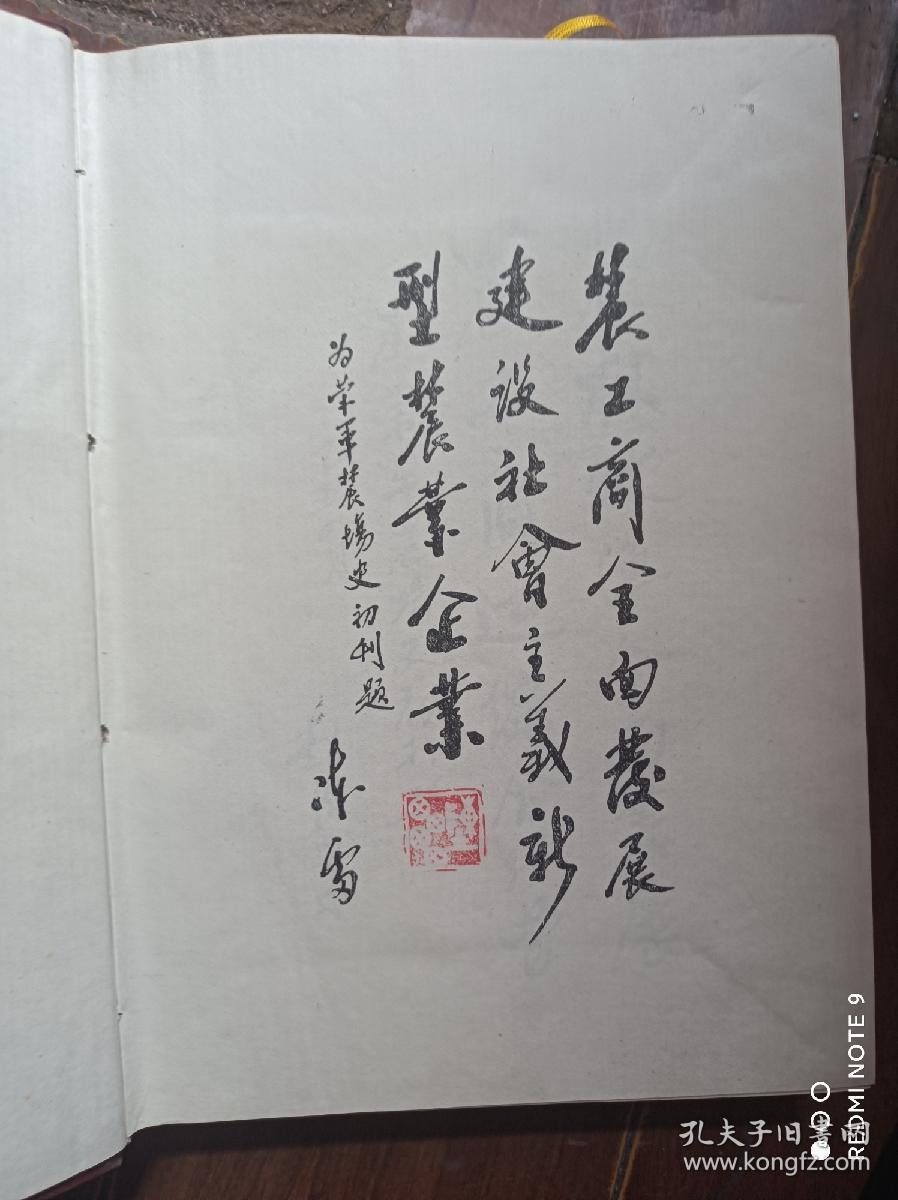 農工商全面發展
建设社會主義新
型農業企業
为荣軍農場史初刊題
孔夫子旧書网
www.kongfz.com
REDMI NOTE 9